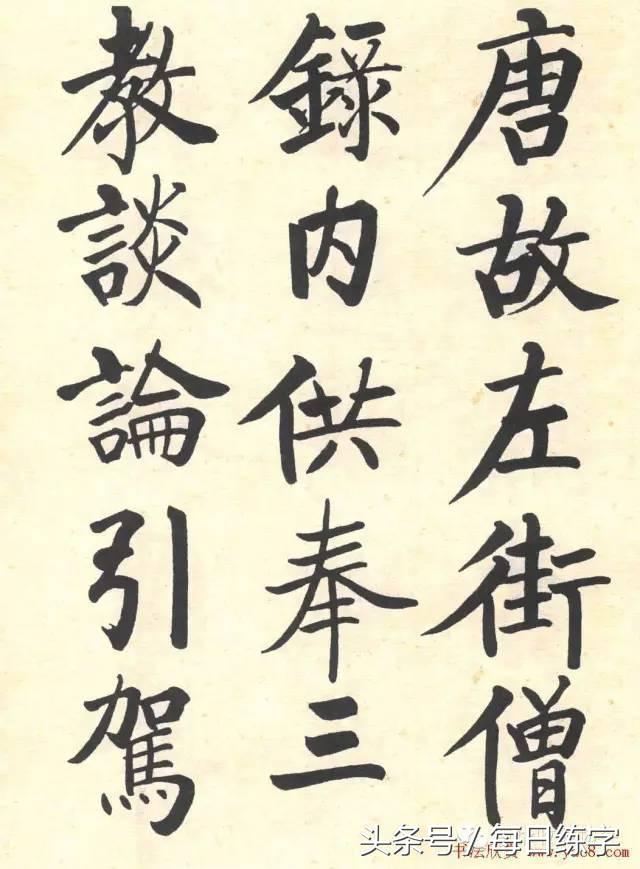 唐故左街僧
錄内供奉三
教談論引駕
头条号／每日练字